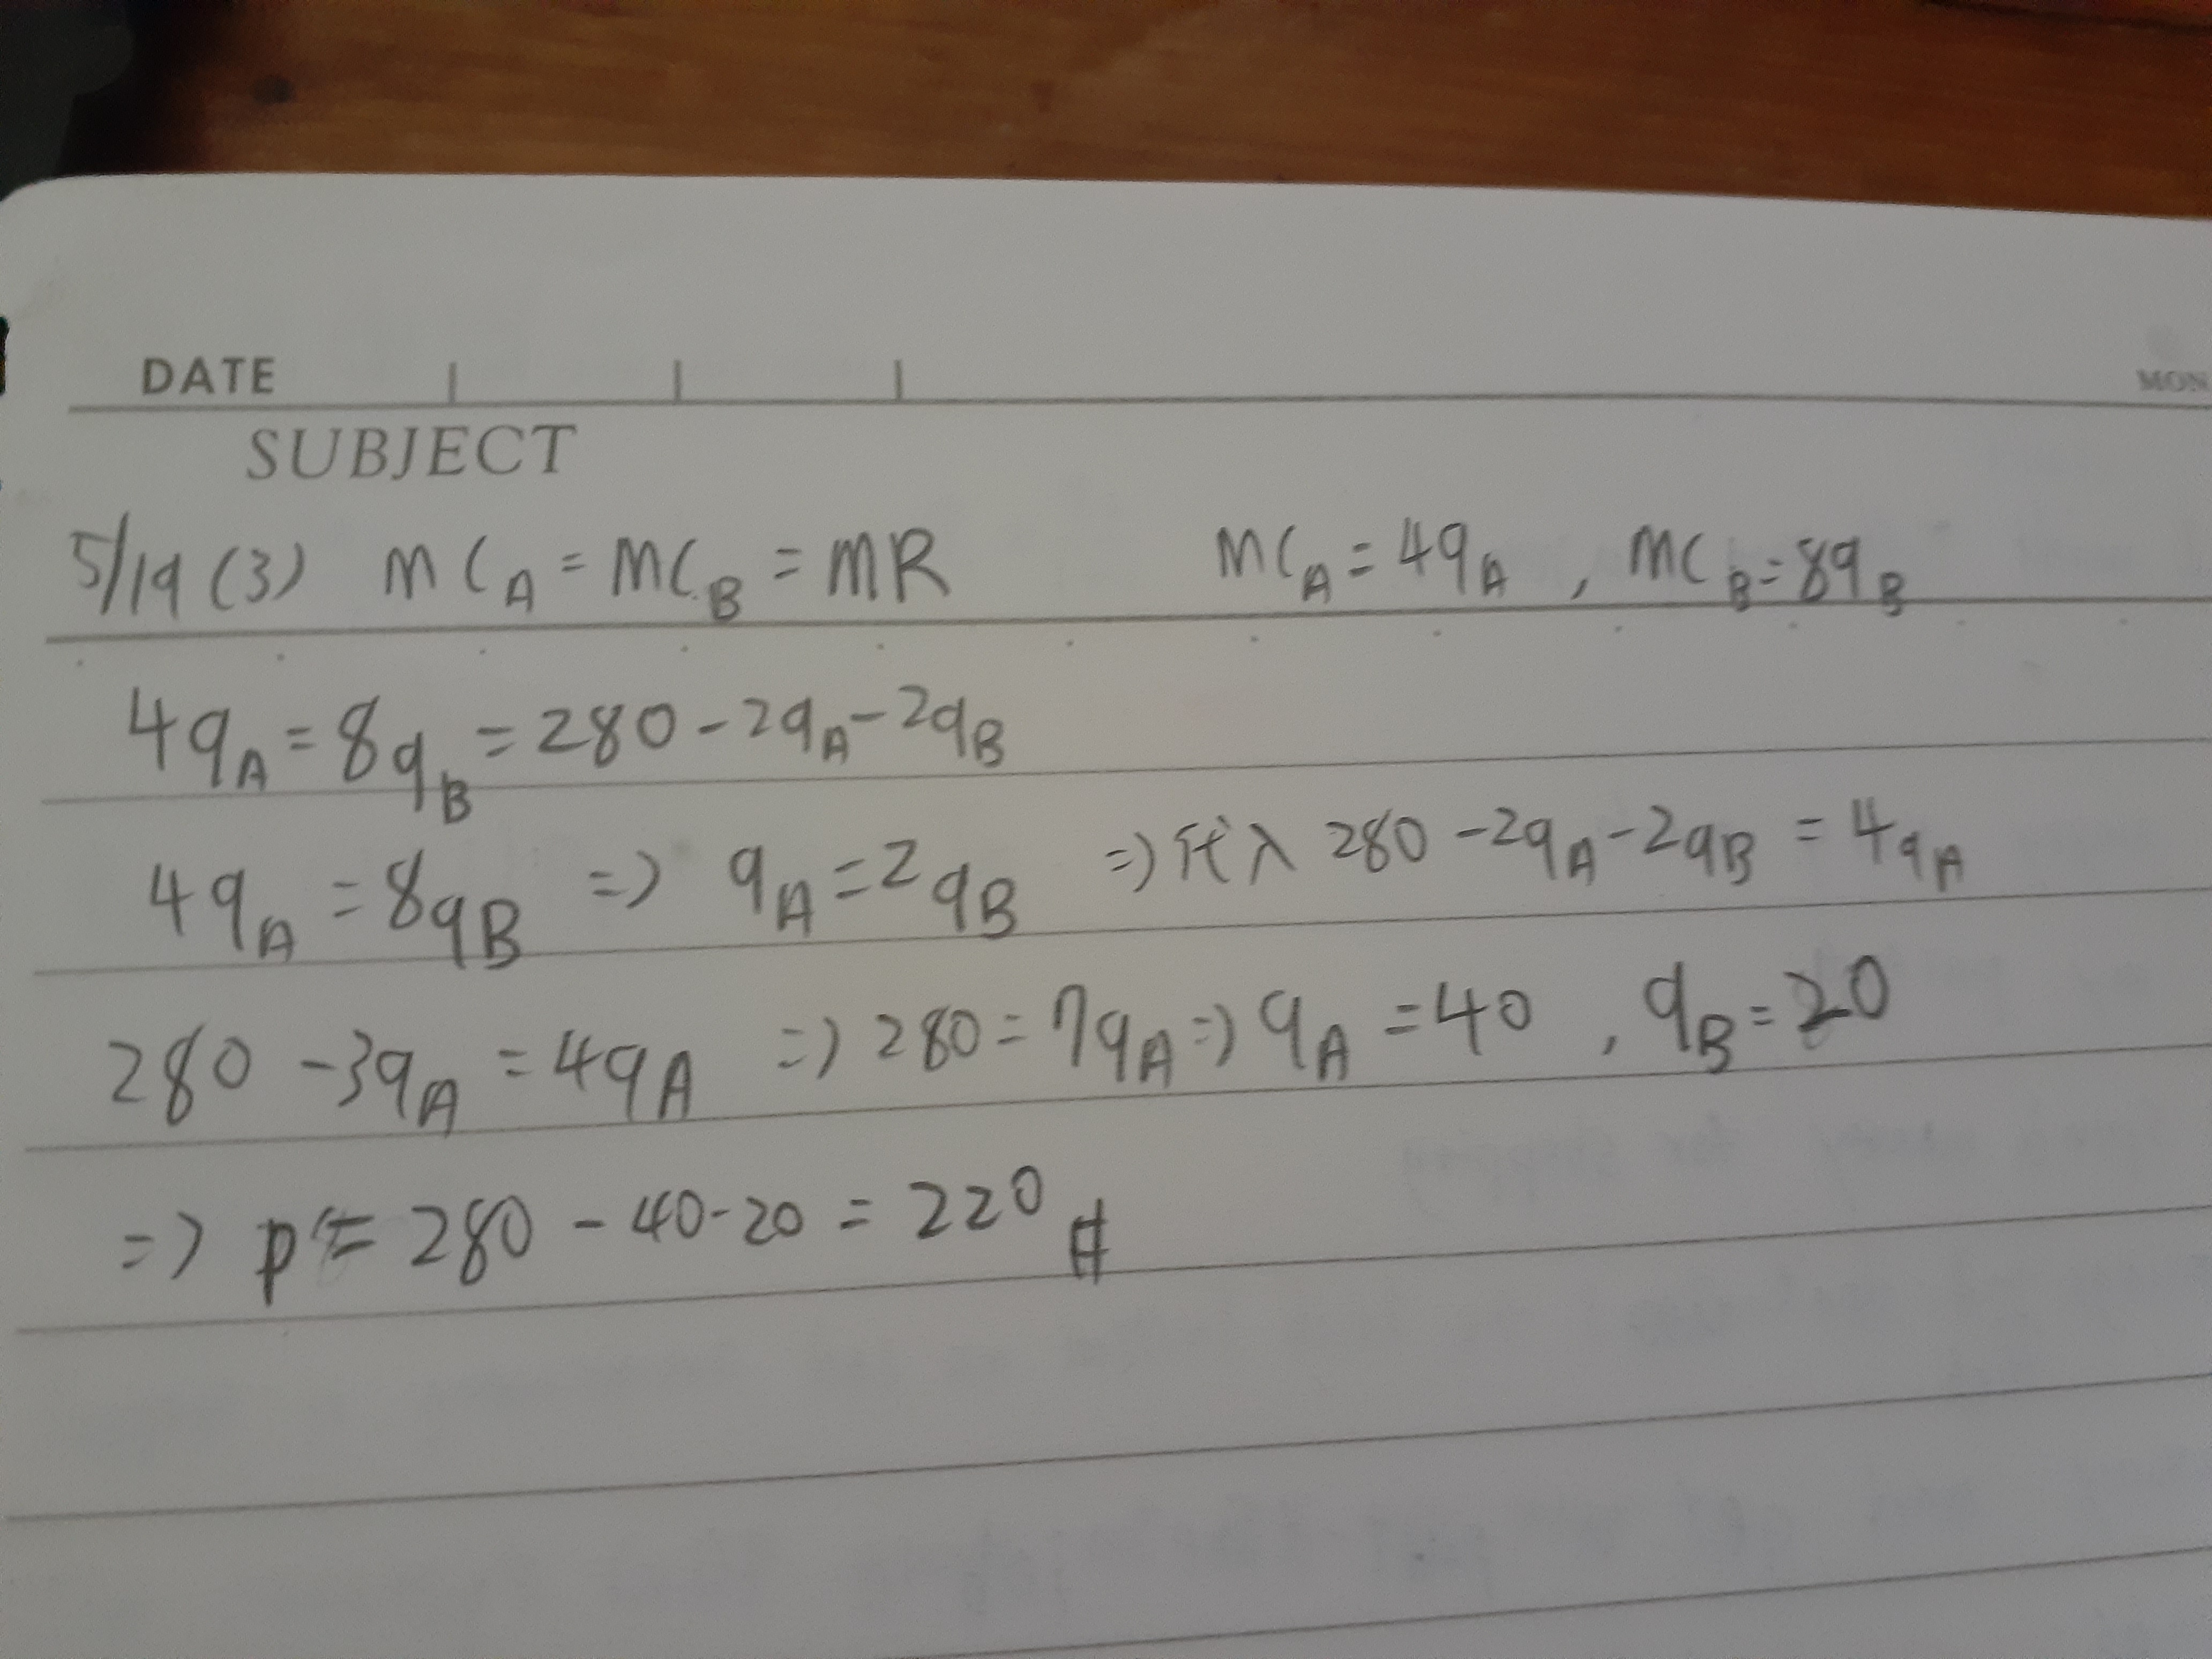 DATE
MON
SUBJECT
5/19 (3) MCA = MCB = MR MCA = 4qA , MCB = 8qB
4qA = 8qB = 280 - 2qA - 2qB
4qA = 8qB => qA = 2qB => 代入 280 - 2qA - 2qB = 4qA
280 - 3qA = 4qA => 280 = 7qA => qA = 40 , qB = 20
=> P = 280 - 40 - 20 = 220 #